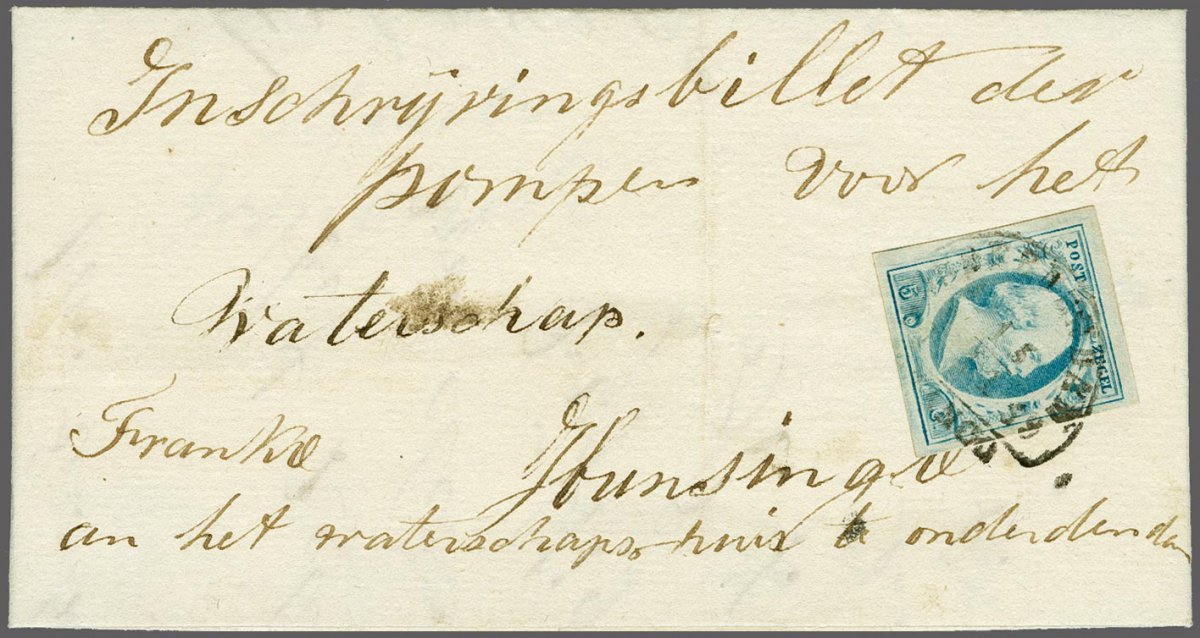 Inschrijvingsbillet der
pompen voor het
Waterschap.
Franke
Hunsingo
an het waterschaps huis te onderdendam
POST ZEGEL
5